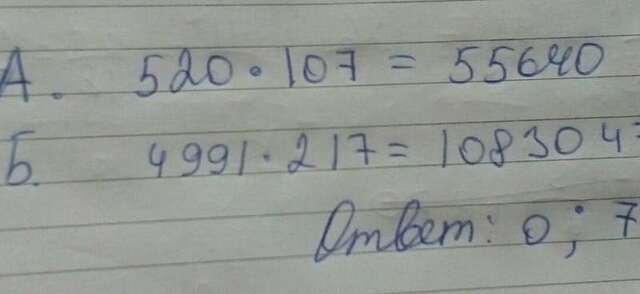 А. 520 · 107 = 55640
Б. 4991 · 217 = 1083047
Ответ: 0; 7